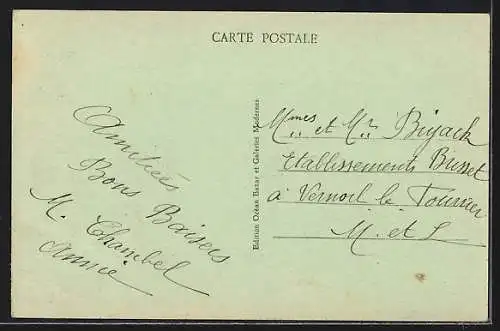 CARTE POSTALE
Amitiés
Bons Baisers
M. Chambel
Annie
Edition Océan Bazar et Galeries Modernes
Mmes et Mr Bijach
Etablissements Brisset
à Vernoil le Fourrier
M. et L